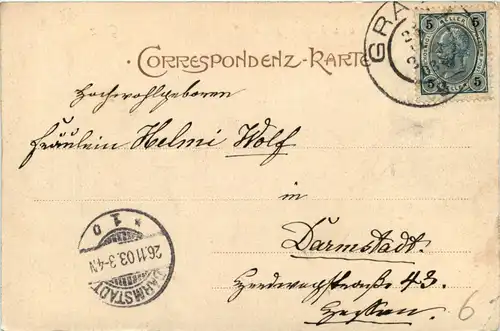 Correspondenz-Karte
GRA
5 HELLER 5
5 5
Hochwohlgeboren
Fräulein Helmi Wolf
in
Darmstadt.
Heerdwegstraße 43.
Hessen.
* 1 o
26.11.03. 3-4N
DARMSTADT
6